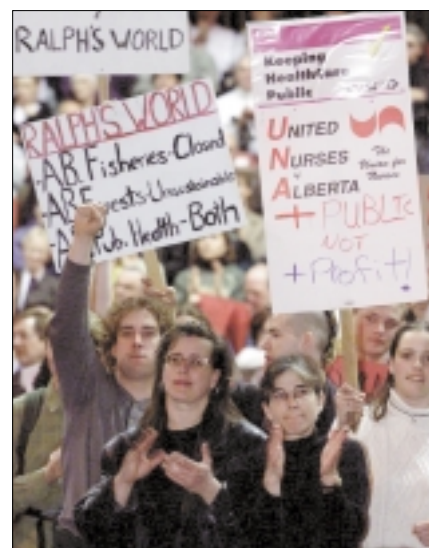 RALPH'S WORLD
RALPH'S WORLD
-AB. Fisheries-Closed
-AB F rests-Unsustainable
-A Pub. Health-Both
Keeping
HealthCare
Public
UNITED
NURSES
of
ALBERTA
The
for
Nurses
+ PUBLIC
NOT
+ Profit!